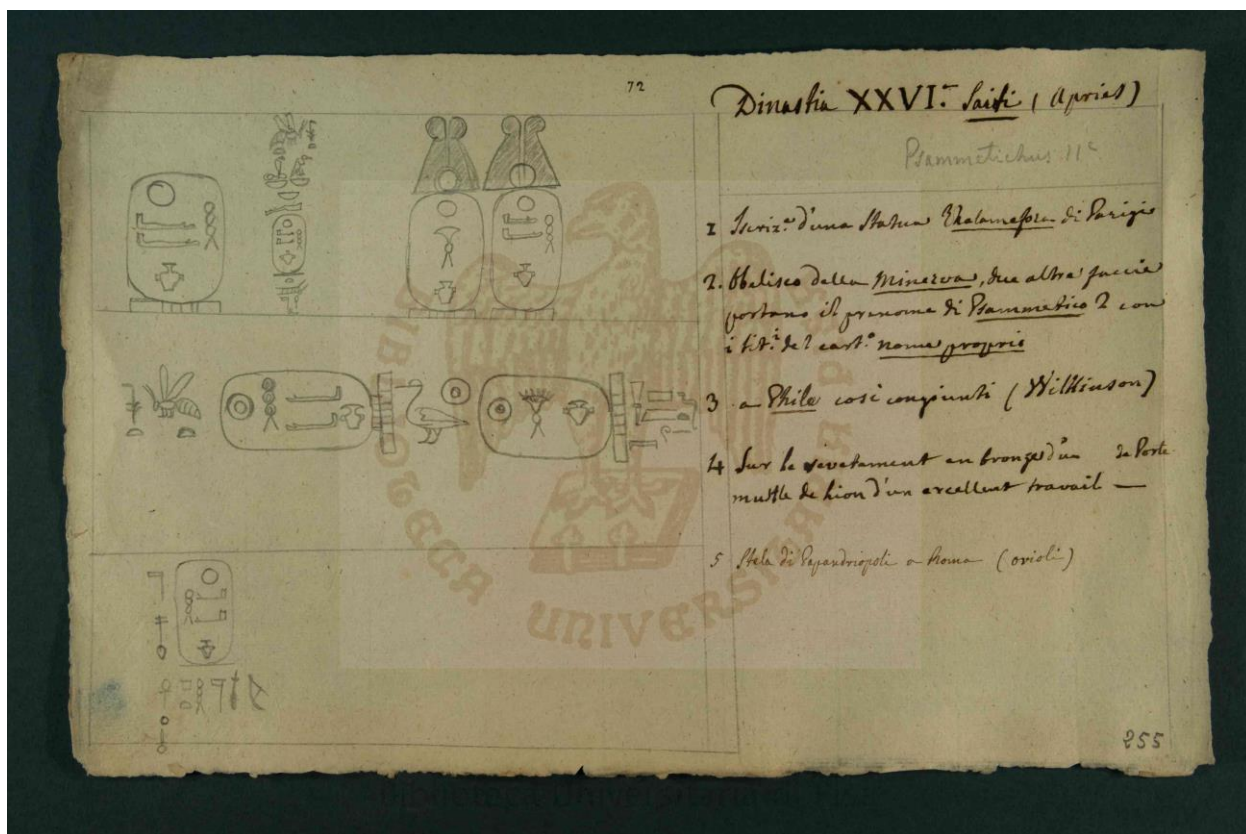 72
Dinastia XXVI.ª Saiti (Apries)
Psammetichus II
1 Iscriz.e d'una Statua di Parigi
2. Obelisco della Minerva, due altre faccie
portano il prenome di Psammetico 2 con
i tit.i del cart.o nome proprio
3 a Phile così congiunti (Wilkinson)
4 Sur le revetament en bronze d'un de Porte
muffle de Lion d'un excellent travail —
5 Stela di a Roma
255
BIBLIOTECA UNIVERSITARIA